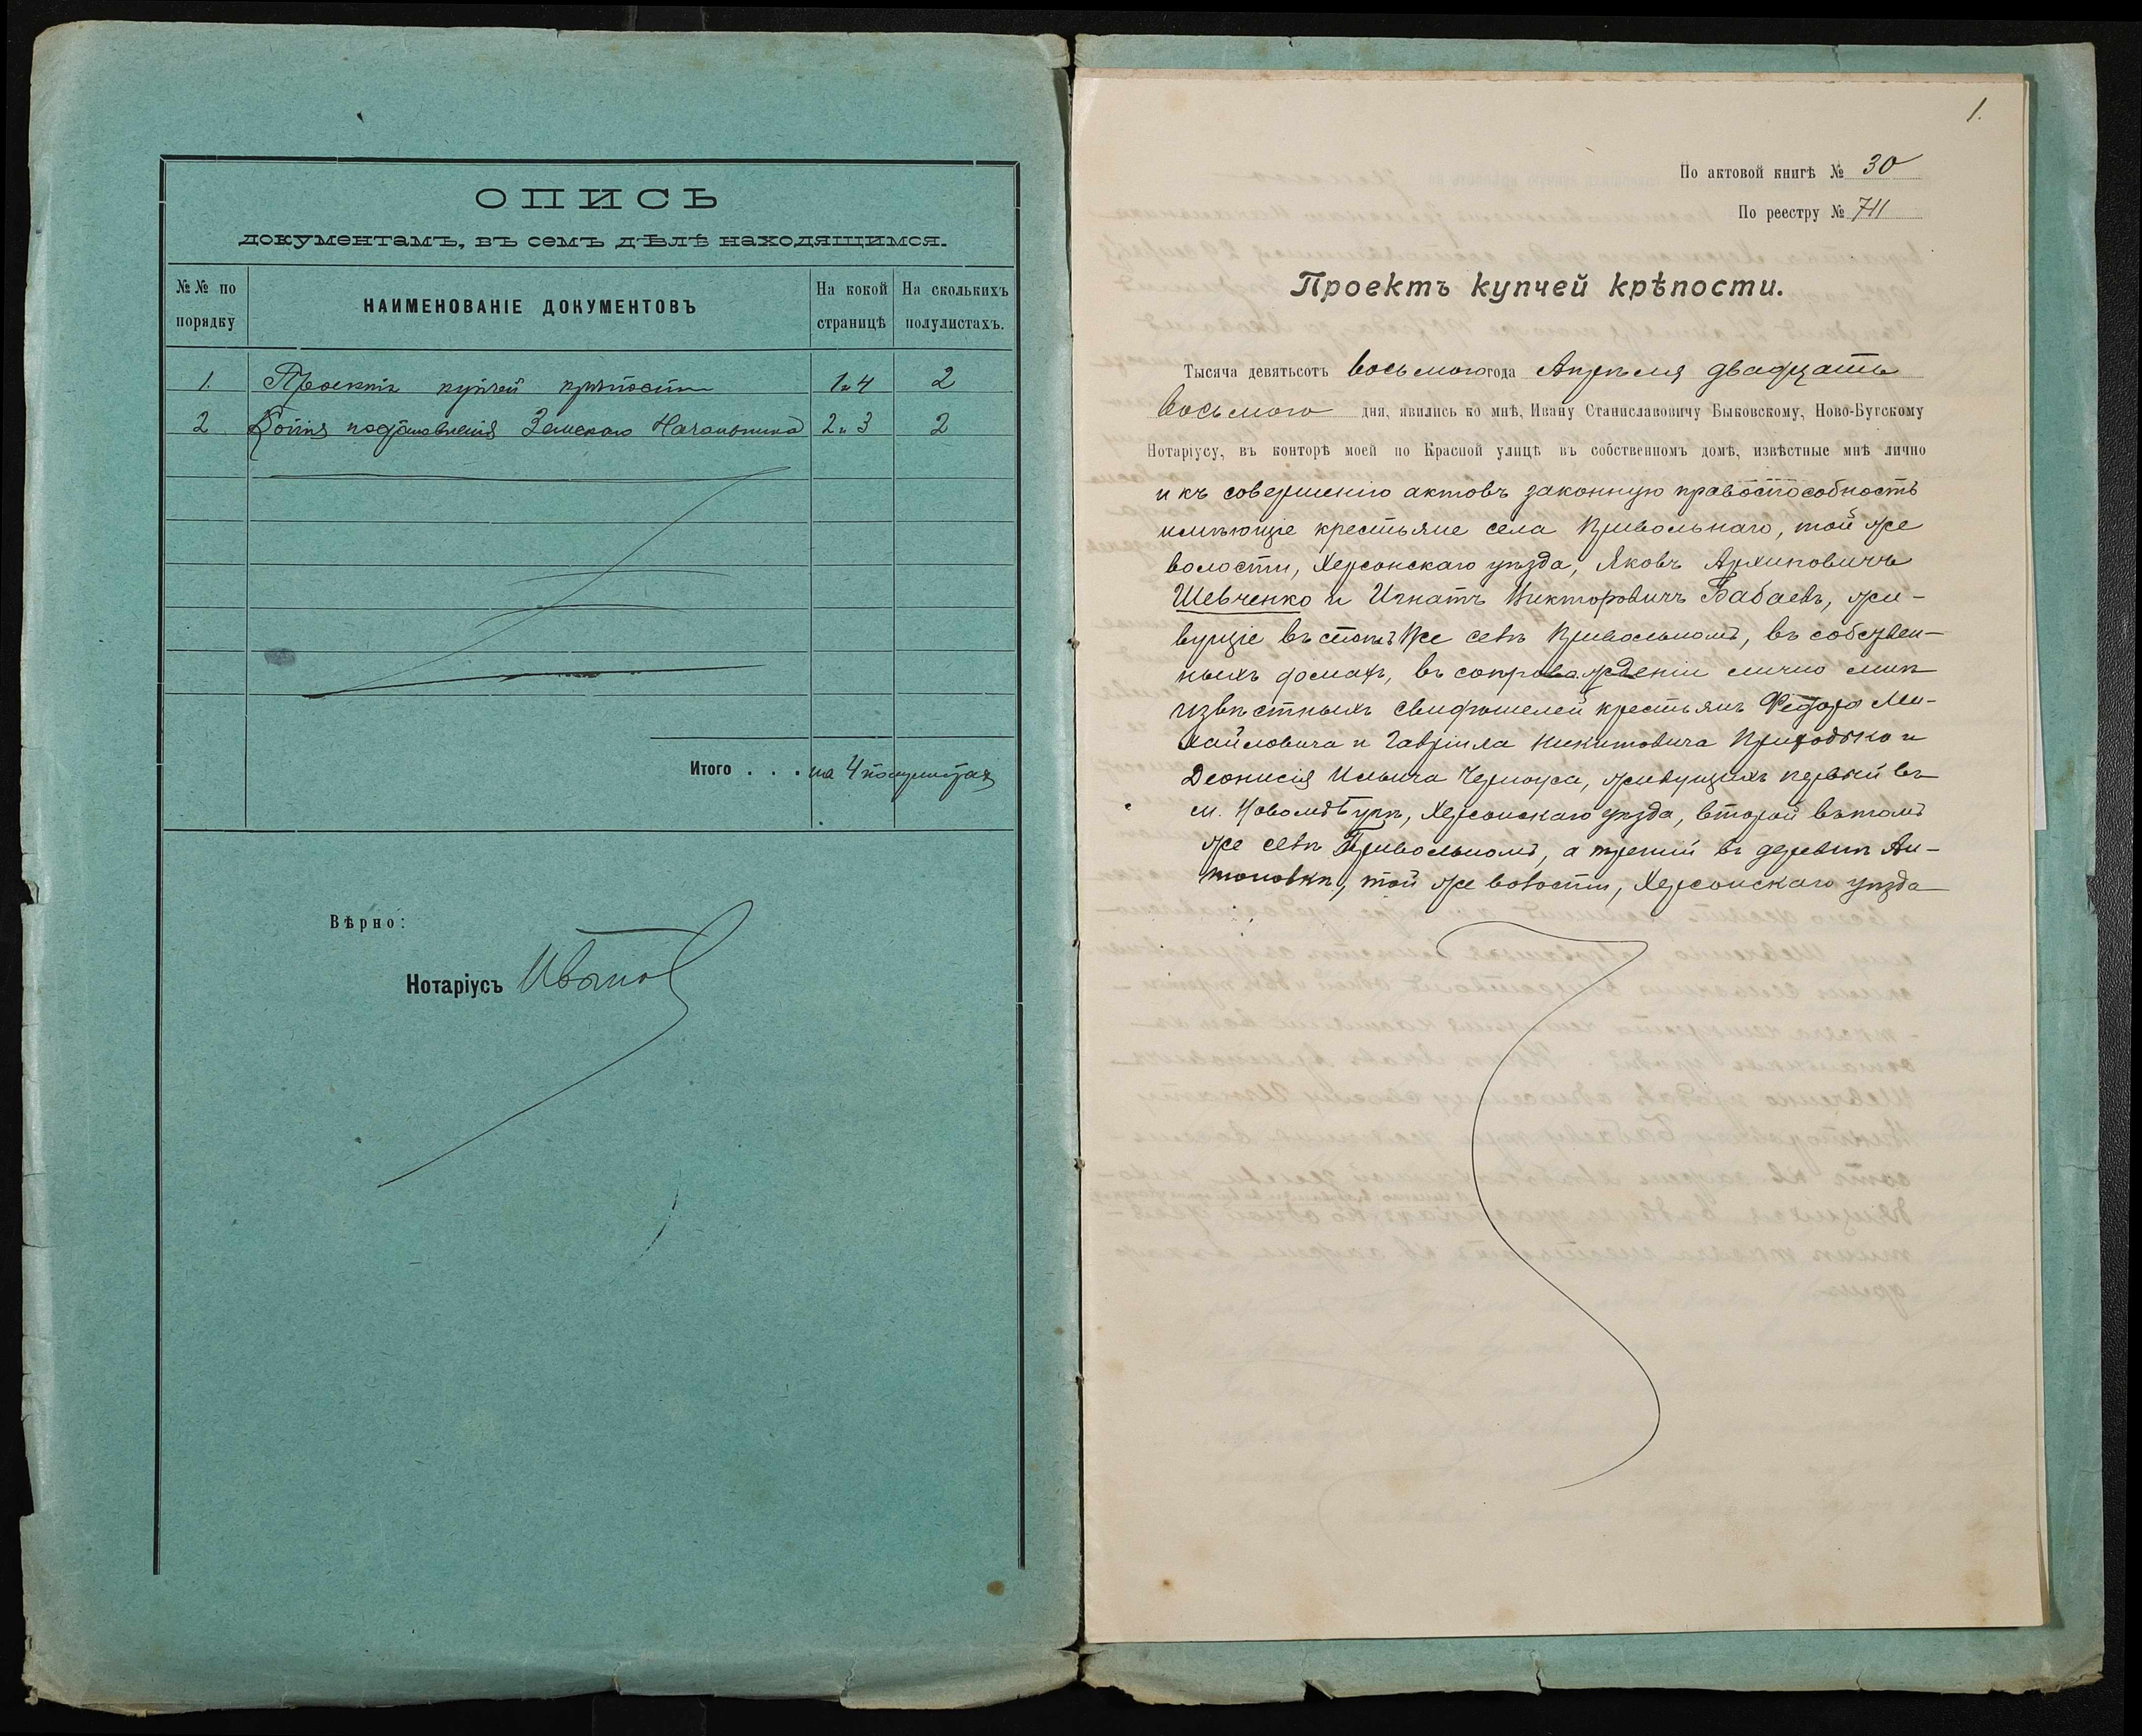 ОПИСЬ
документамъ, въ семъ дѣлѣ находящимся.
№№ по порядку
НАИМЕНОВАНІЕ ДОКУМЕНТОВЪ
На кокой страницѣ
На сколькихъ полулистахъ.
1. Проектъ купчей крѣпости 1 и 4 2
2 Копія постановленія Земскаго Начальника 2 и 3 2
Итого . . . на 4 полулистах
Вѣрно:
Нотаріусъ
1.
По актовой книгѣ № 30
По реестру № 711
Проектъ купчей крѣпости.
Тысяча девятьсотъ восьмого года Апрѣля двадцать
восьмого дня, явились ко мнѣ, Ивану Станиславовичу Быковскому, Ново-Бугскому
Нотаріусу, въ конторѣ моей по Красной улицѣ въ собственномъ домѣ, извѣстные мнѣ лично
и къ совершенію актовъ законную правоспособность
имѣющіе крестьяне села Привольнаго, той же
волости, Херсонскаго уѣзда, Яковъ Архиповичъ
Шевченко и Игнатъ Викторовичъ Бабаевъ, жи-
вущіе въ томъ же селѣ Привольномъ, въ собствен-
ныхъ домахъ, въ сопровожденіи лично мнѣ
извѣстныхъ свидѣтелей крестьянъ Федора Ми-
хайловича и Гавріила Никитовича Приходько и
Діонисія Ильича Черноуса, живущихъ первый въ
м. Новомъ Бугѣ, Херсонскаго уѣзда, второй въ томъ
же селѣ Привольномъ, а третій въ деревнѣ Ан-
тоновкѣ, той же волости, Херсонскаго уѣзда